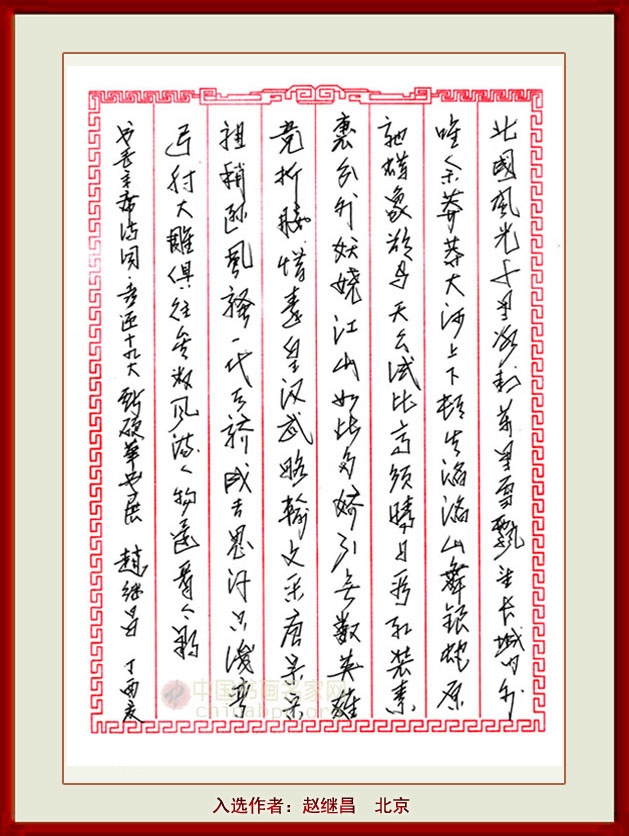 北國風光千里冰封萬里雪飄望長城内外
唯余莽莽大河上下頓失滔滔山舞銀蛇原
馳蜡象欲与天公試比高須晴日看红装素
裹分外妖娆江山如此多娇引无数英雄
竞折腰惜秦皇汉武略輸文采唐宗宋
祖稍逊風騷一代天骄成吉思汗只識弯
弓射大雕俱往矣数风流人物還看今朝
书毛主席诗词喜迎十九大 硬筆书展 趙继昌 丁酉夏
中国书画名家网
入选作者：赵继昌 北京